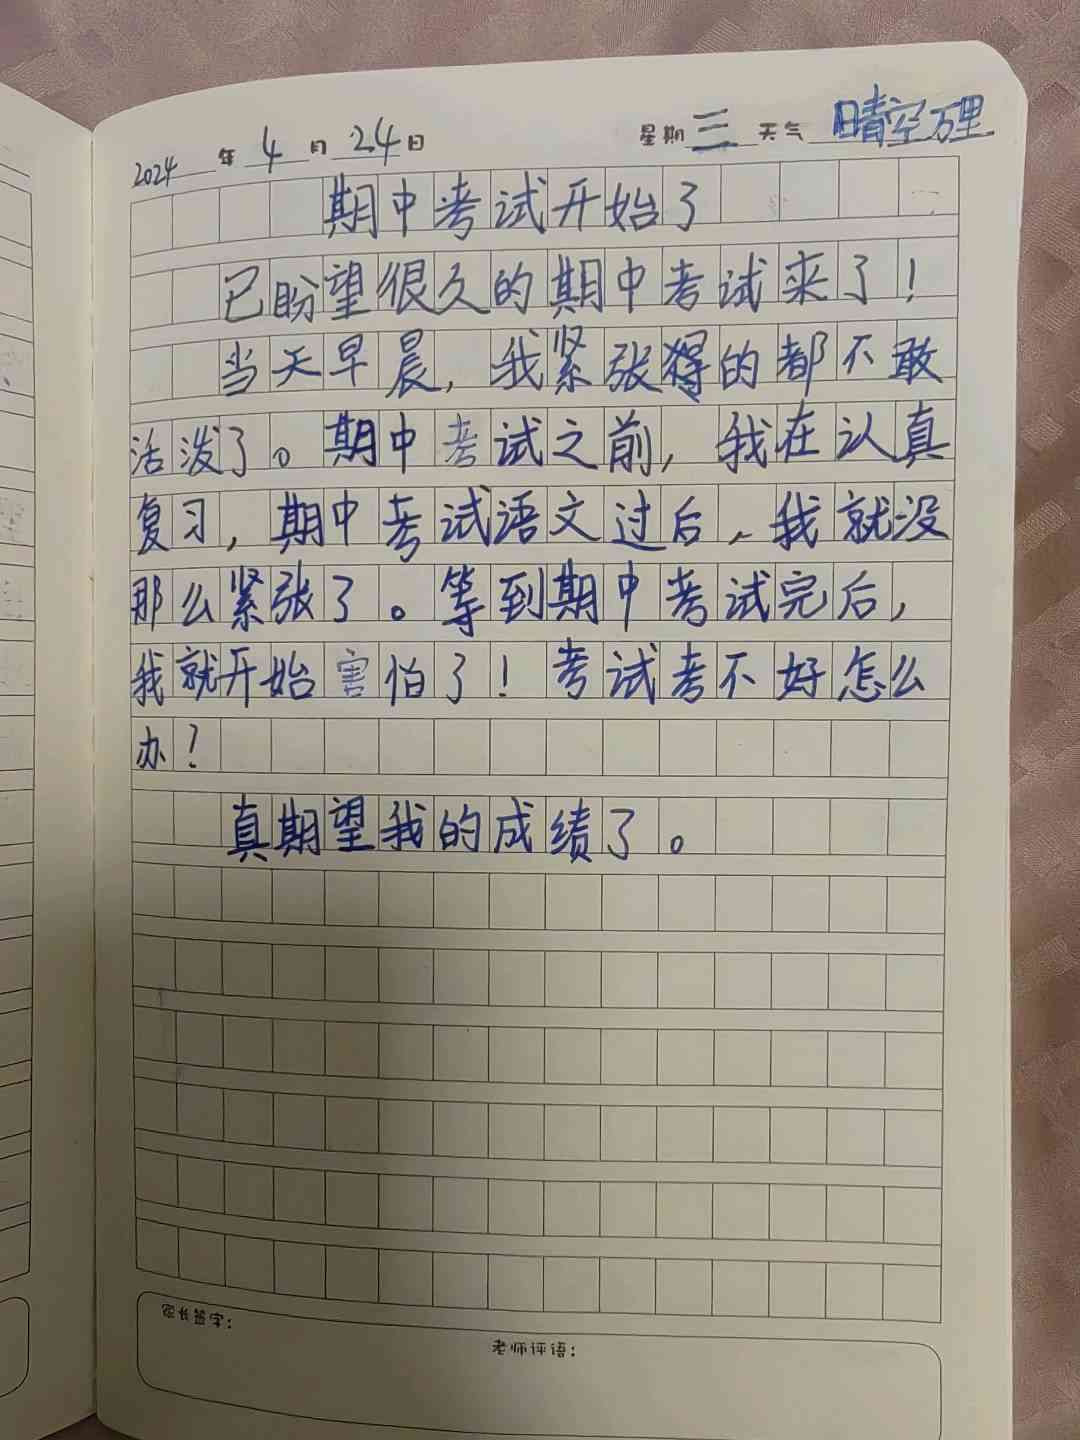 2024年4月24日 星期三 天气 晴空万里
期中考试开始了
已盼望很久的期中考试来了!
当天早晨,我紧张得的都不敢
活泼了。期中考试之前,我在认真
复习,期中考试语文过后、我就没
那么紧张了。等到期中考试完后,
我就开始害怕了!考试考不好怎么
办?
真期望我的成绩了。
家长签字:
老师评语: